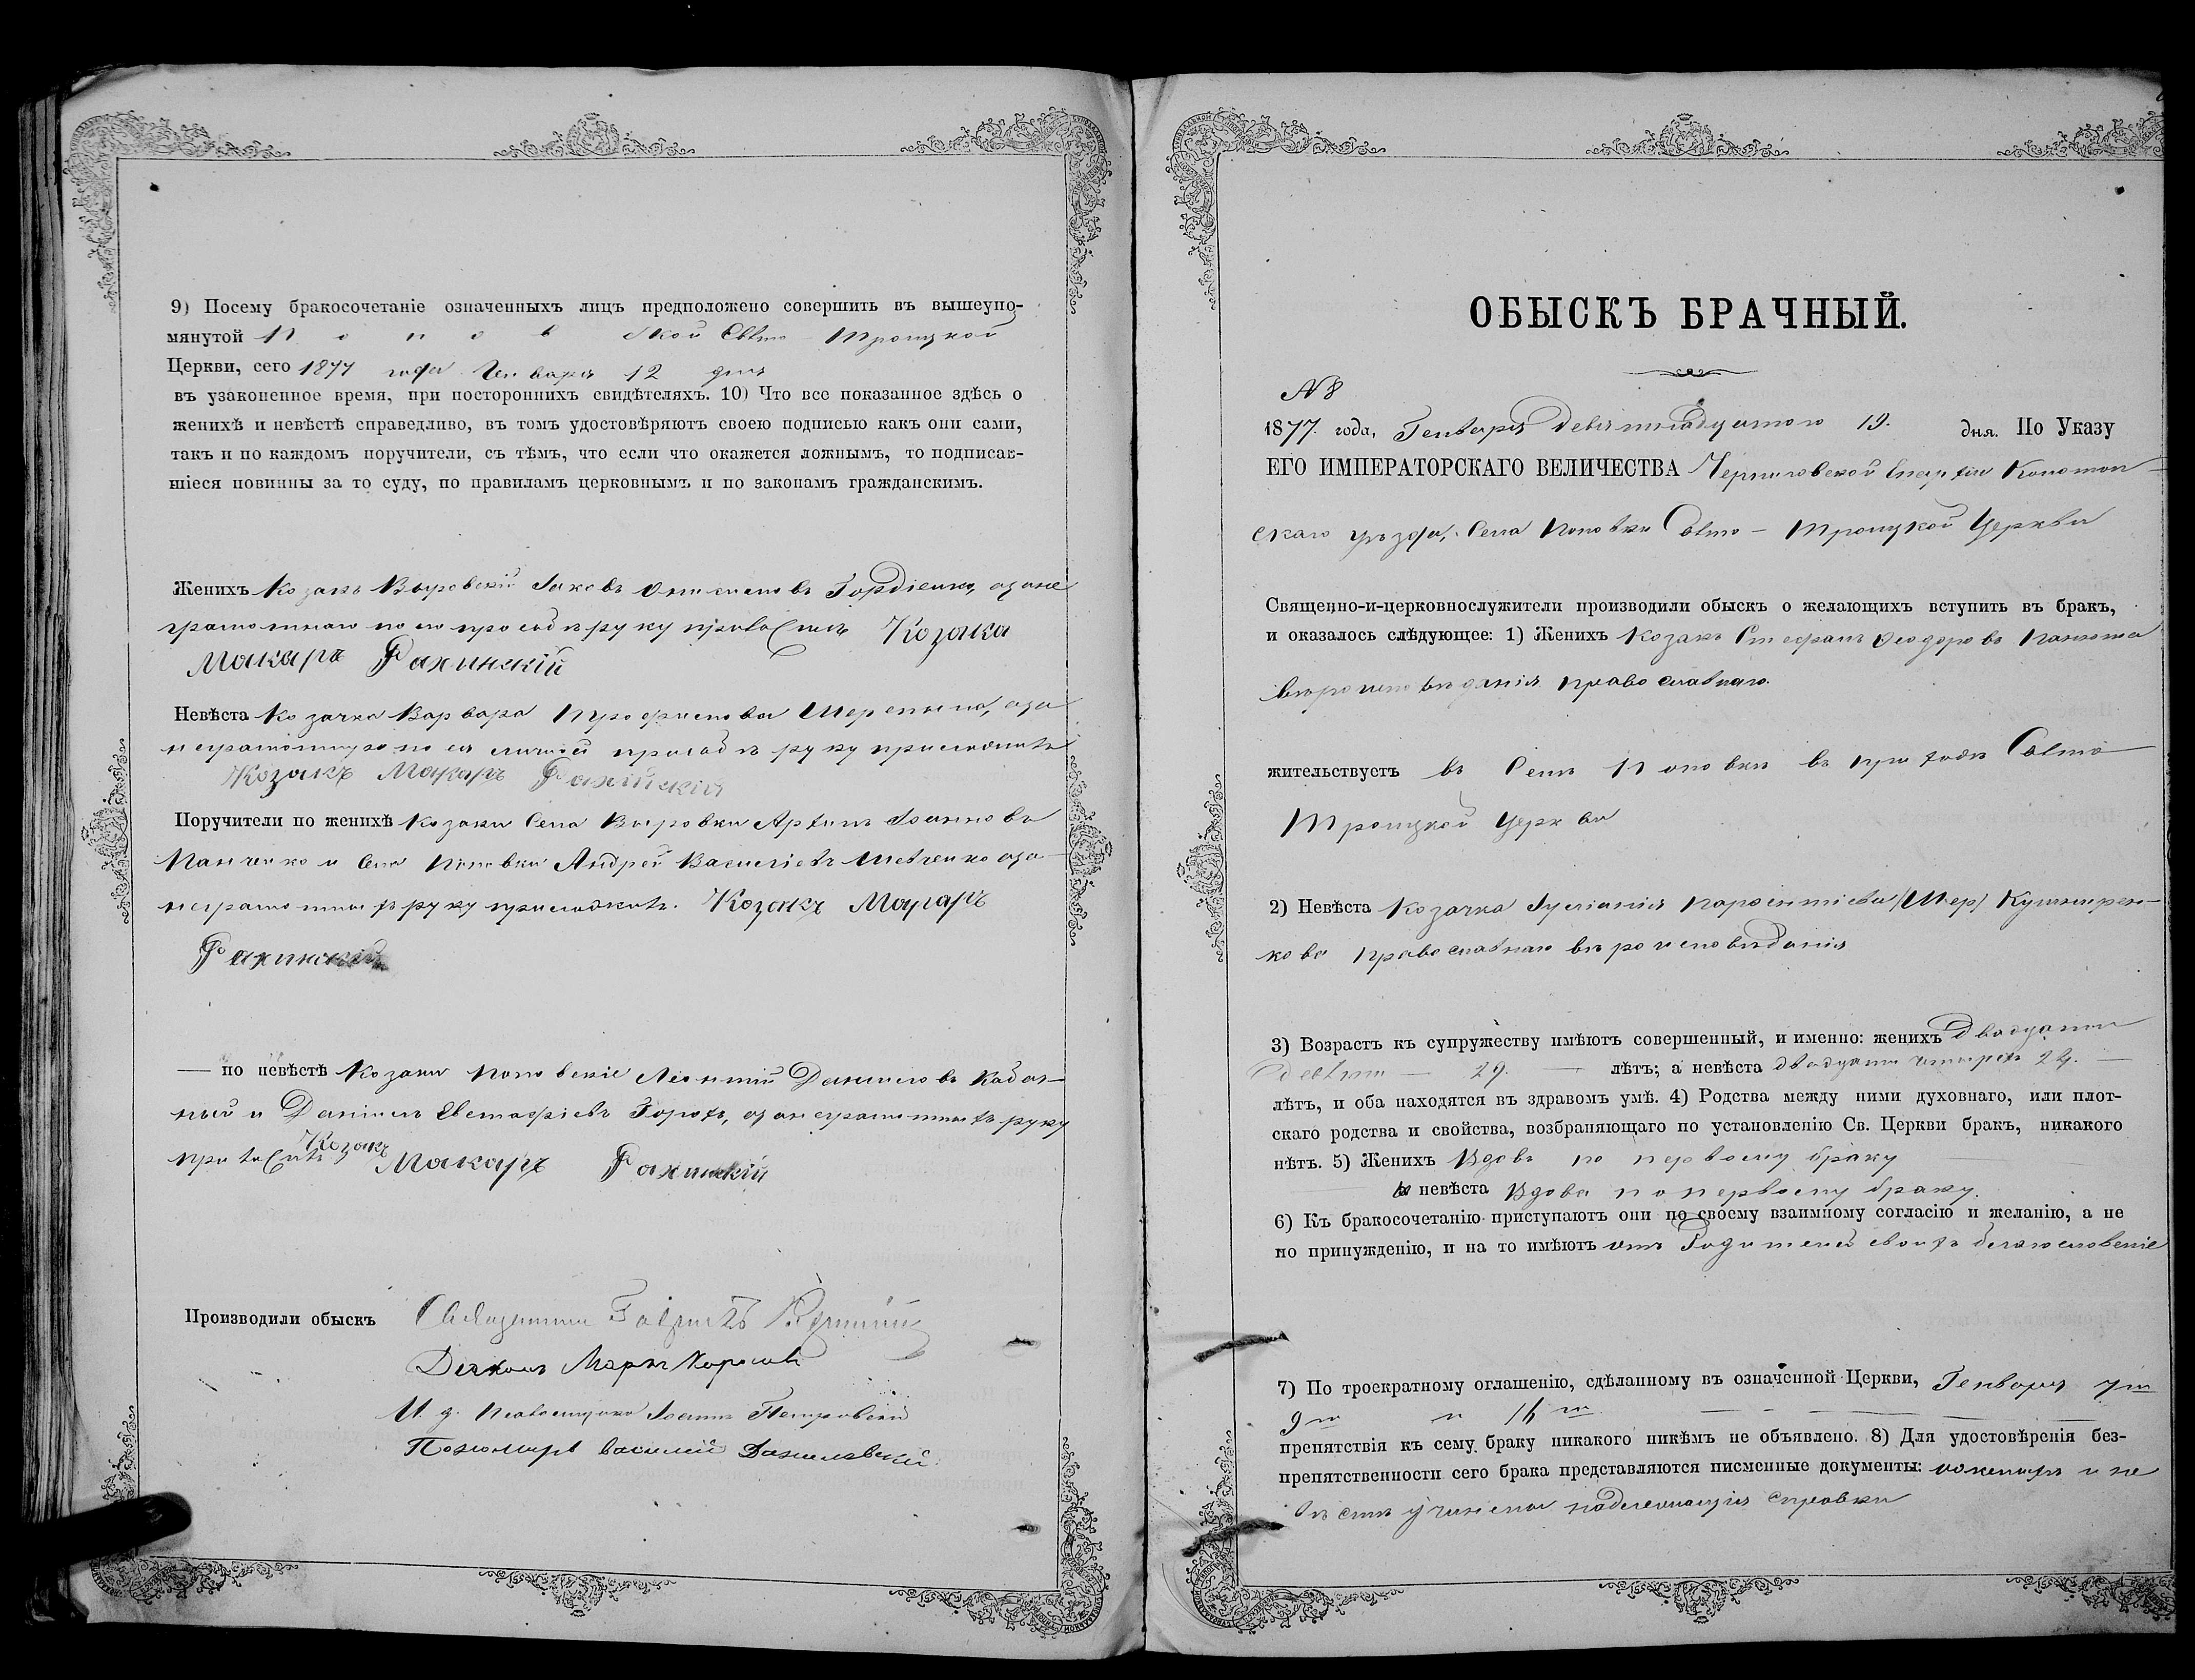 9) Посему бракосочетаніе означенныхъ лицъ предположено совершить въ вышеупо-
мянутой П о п о в ской Свѣто - Троицкой
Церкви, сего 1877 года Генваря 12 дня
въ узаконенное время, при постороннихъ свидѣтеляхъ. 10) Что все показанное здѣсь о
женихѣ и невѣстѣ справедливо, въ томъ удостовѣряютъ своею подписью какъ они сами,
такъ и по каждомъ поручители, съ тѣмъ, что если что окажется ложнымъ, то подписав-
шіеся повинны за то суду, по правиламъ церковнымъ и по законамъ гражданскимъ.
Женихъ Козакъ Выровскій Іаковъ Гордіенко, а за не
грамотнаго по его прозьбѣ руку Козака
Макаръ Рахинскій
Невѣста Козачка Варвара а за
неграмотную по ея личной прозьбѣ руку приложилъ
Козакъ Макаръ Рахинскій
Поручители по женихѣ Козаки Села Выровки Іоанновъ
Панченко и Села Поповки Андрей Василіевъ Шевченко а за
неграмотныхъ руку приложилъ. Козакъ Макаръ
Рахинскій
— по невѣстѣ Козаки Поповскіе Леонтій Даниловъ
ный и Даніилъ Евстафіевъ а за неграмотныхъ руку
Козакъ
Макаръ Рахинскій
Производили обыскъ Священникъ Гавріилъ
Діаконъ Маркъ
И. д. Псаломщика Іоаннъ Петровскій
Пономарь Василій Данилевскій
ОБЫСКЪ БРАЧНЫЙ.
№ 8
1877. года, Генваря Девятнадцатого 19. дня. По Указу
ЕГО ИМПЕРАТОРСКАГО ВЕЛИЧЕСТВА Черниговской Епархіи Конотоп-
скаго уѣзда, Села Поповки Свѣто - Троицкой Церкви
Священно-и-церковнослужители производили обыскъ о желающихъ вступить въ бракъ,
и оказалось слѣдующее: 1) Женихъ Козакъ Стефанъ Феодоровъ
вѣроисповѣданія православнаго.
жительствуетъ въ Селѣ Поповкѣ въ приходѣ Свѣто
Троицкой Церкви
2) Невѣста Козачка Іуліанія Парфентіева
кова православнаго вѣроисповѣданія
3) Возрастъ къ супружеству имѣютъ совершенный, и именно: женихъ Двадцати
девяти — 29. — лѣтъ; а невѣста двадцати четырехъ 24. —
лѣтъ, и оба находятся въ здравомъ умѣ. 4) Родства между ними духовнаго, или плот-
скаго родства и свойства, возбраняющаго по установленію Св. Церкви бракъ, никакого
нѣтъ. 5) Женихъ Вдовъ по первому браку
невѣста Вдова по первому браку.
6) Къ бракосочетанію приступаютъ они по своему взаимному согласію и желанію, а не
по принужденію, и на то имѣютъ отъ Родителей своихъ благословеніе
7) По троекратному оглашенію, сдѣланному въ означенной Церкви, Генваря
9го и 16го
препятствія къ сему браку никакого никѣмъ не объявлено. 8) Для удостовѣренія без-
препятственности сего брака представляются писменные документы: о женихѣ и не
вѣстѣ учинена надлежащая справка